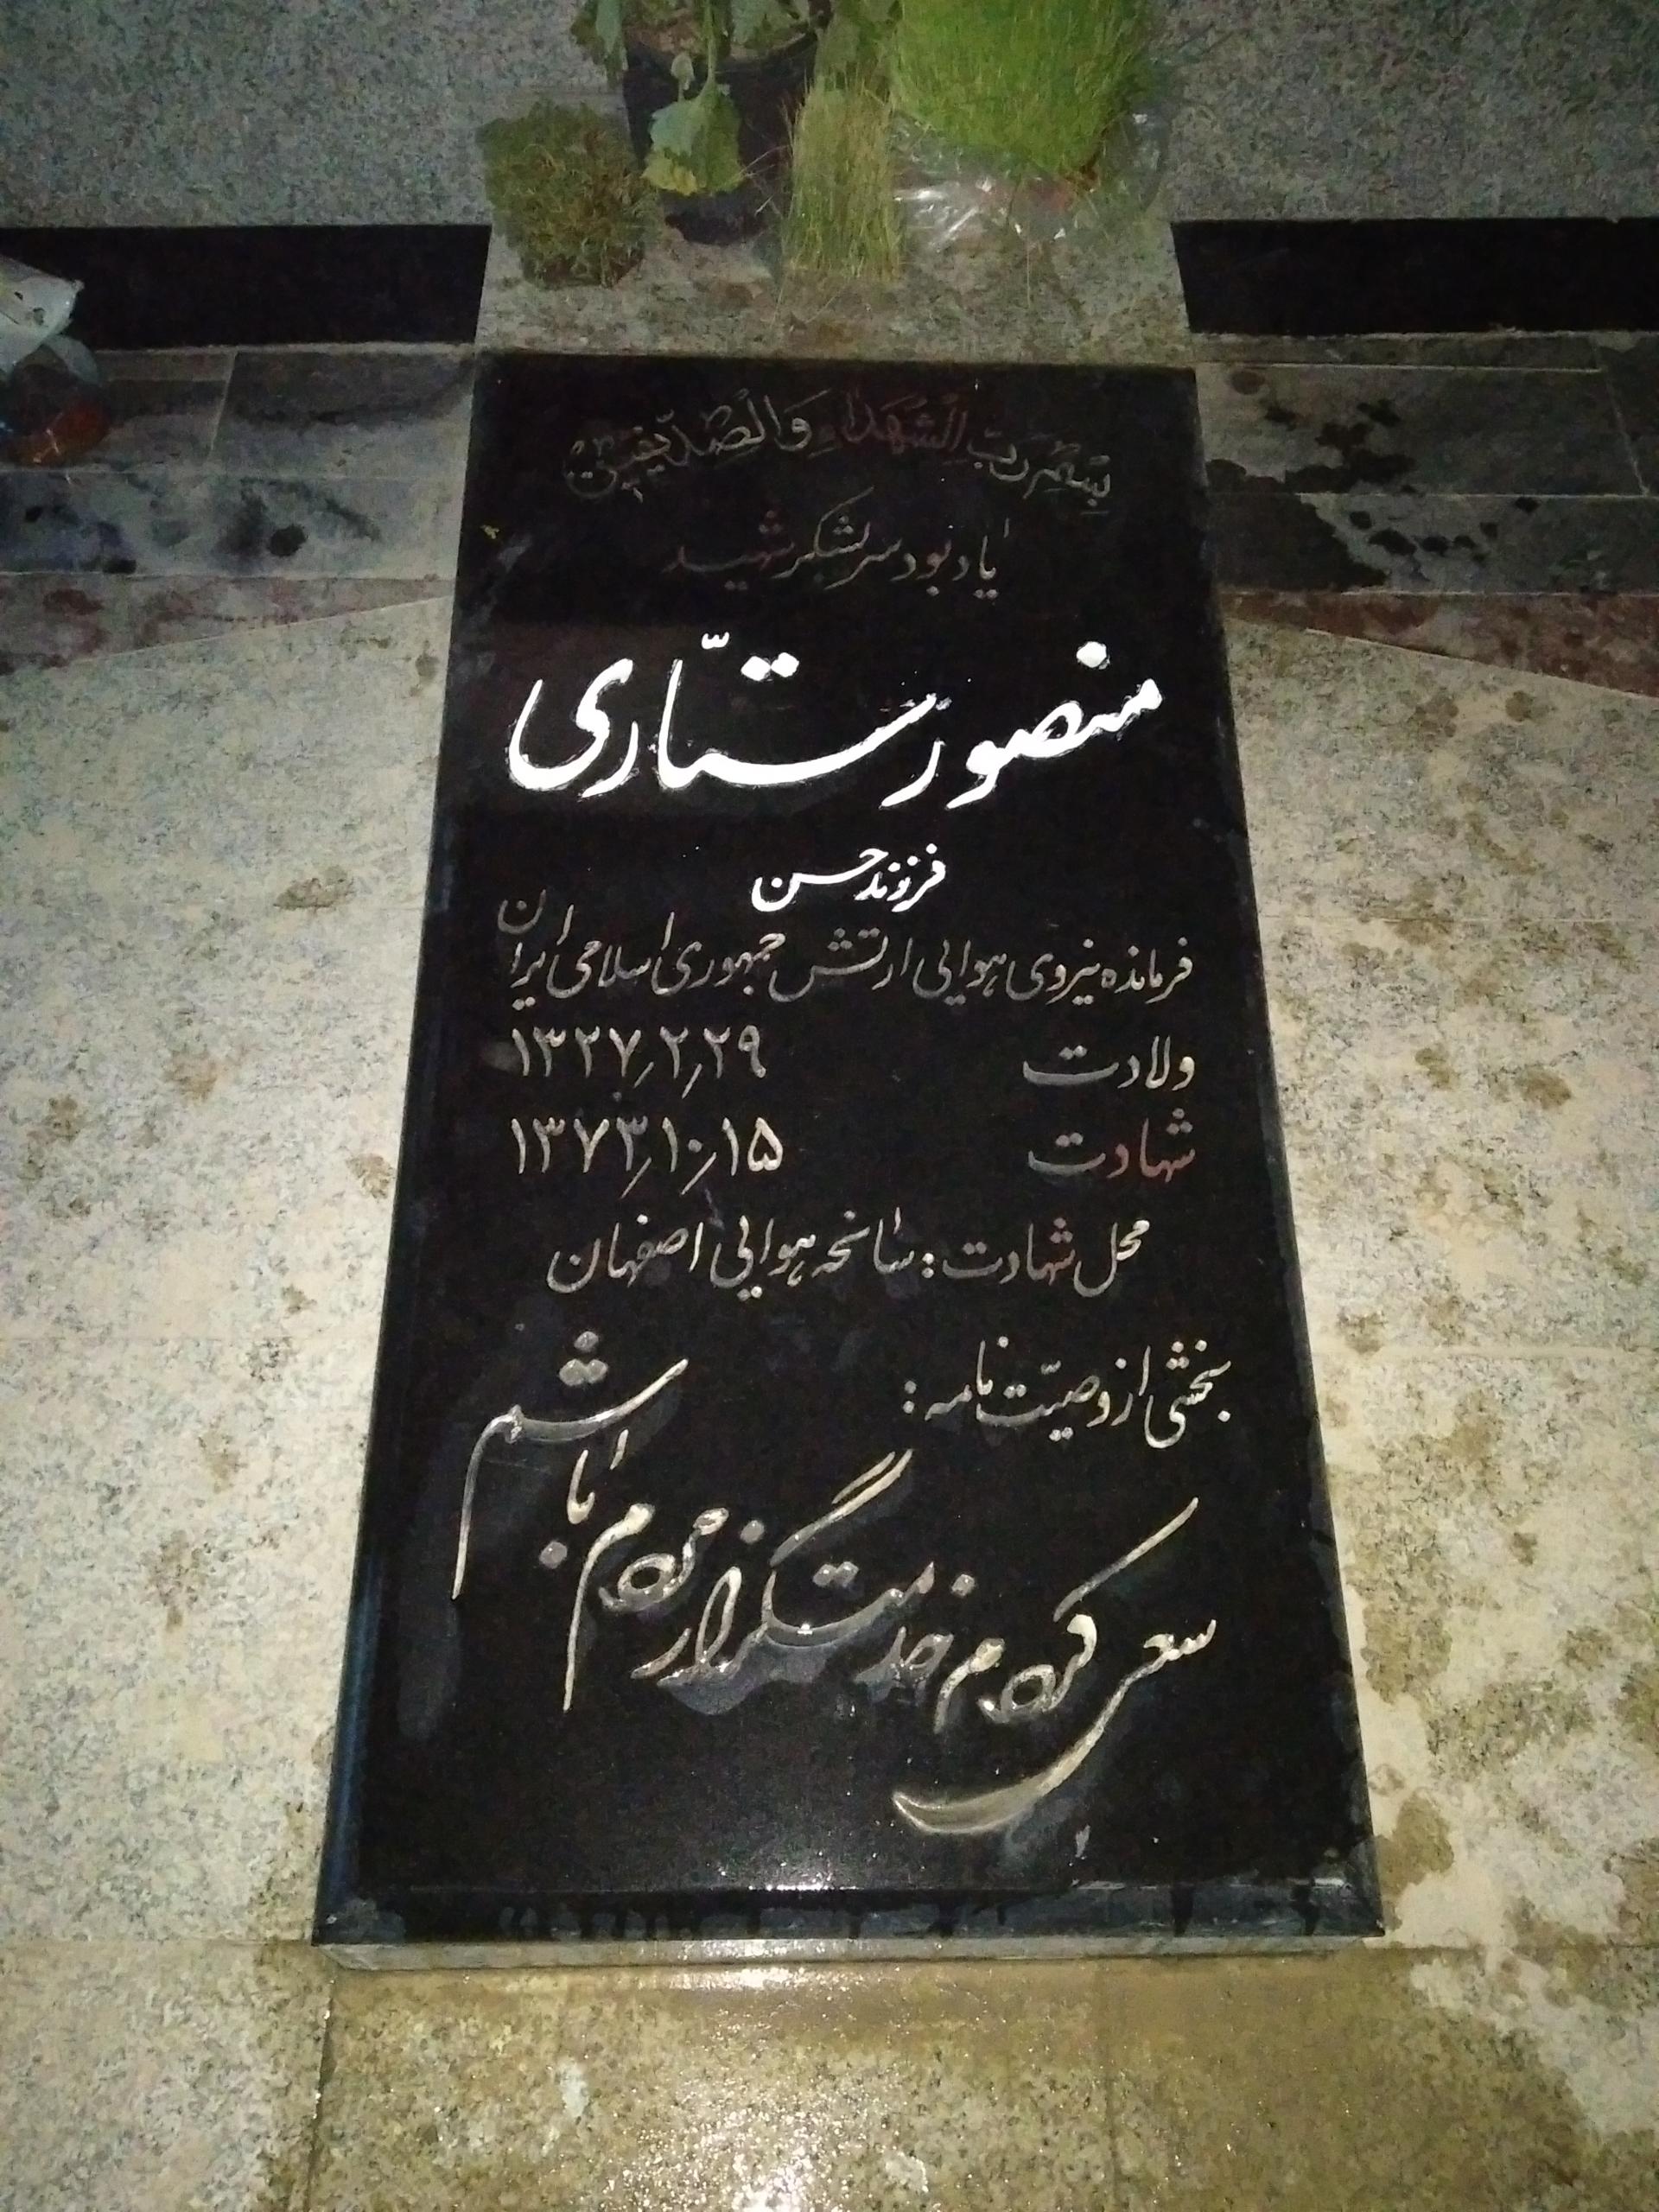 بِسْمِ رَبِّ الشُّهَدَاءِ وَالْصِّدِّیقِینَ
یادبود سرلشکر شهید
منصور ستّاری
فرزند حسن
فرمانده نیروی هوایی ارتش جمهوری اسلامی ایران
ولادت ۱۳۲۷/۲/۲۹
شهادت ۱۳۷۳/۱۰/۱۵
محل شهادت : سانحه هوایی اصفهان
بخشی از وصیّت نامه :
سعی کردم خدمتگزار مردم باشم